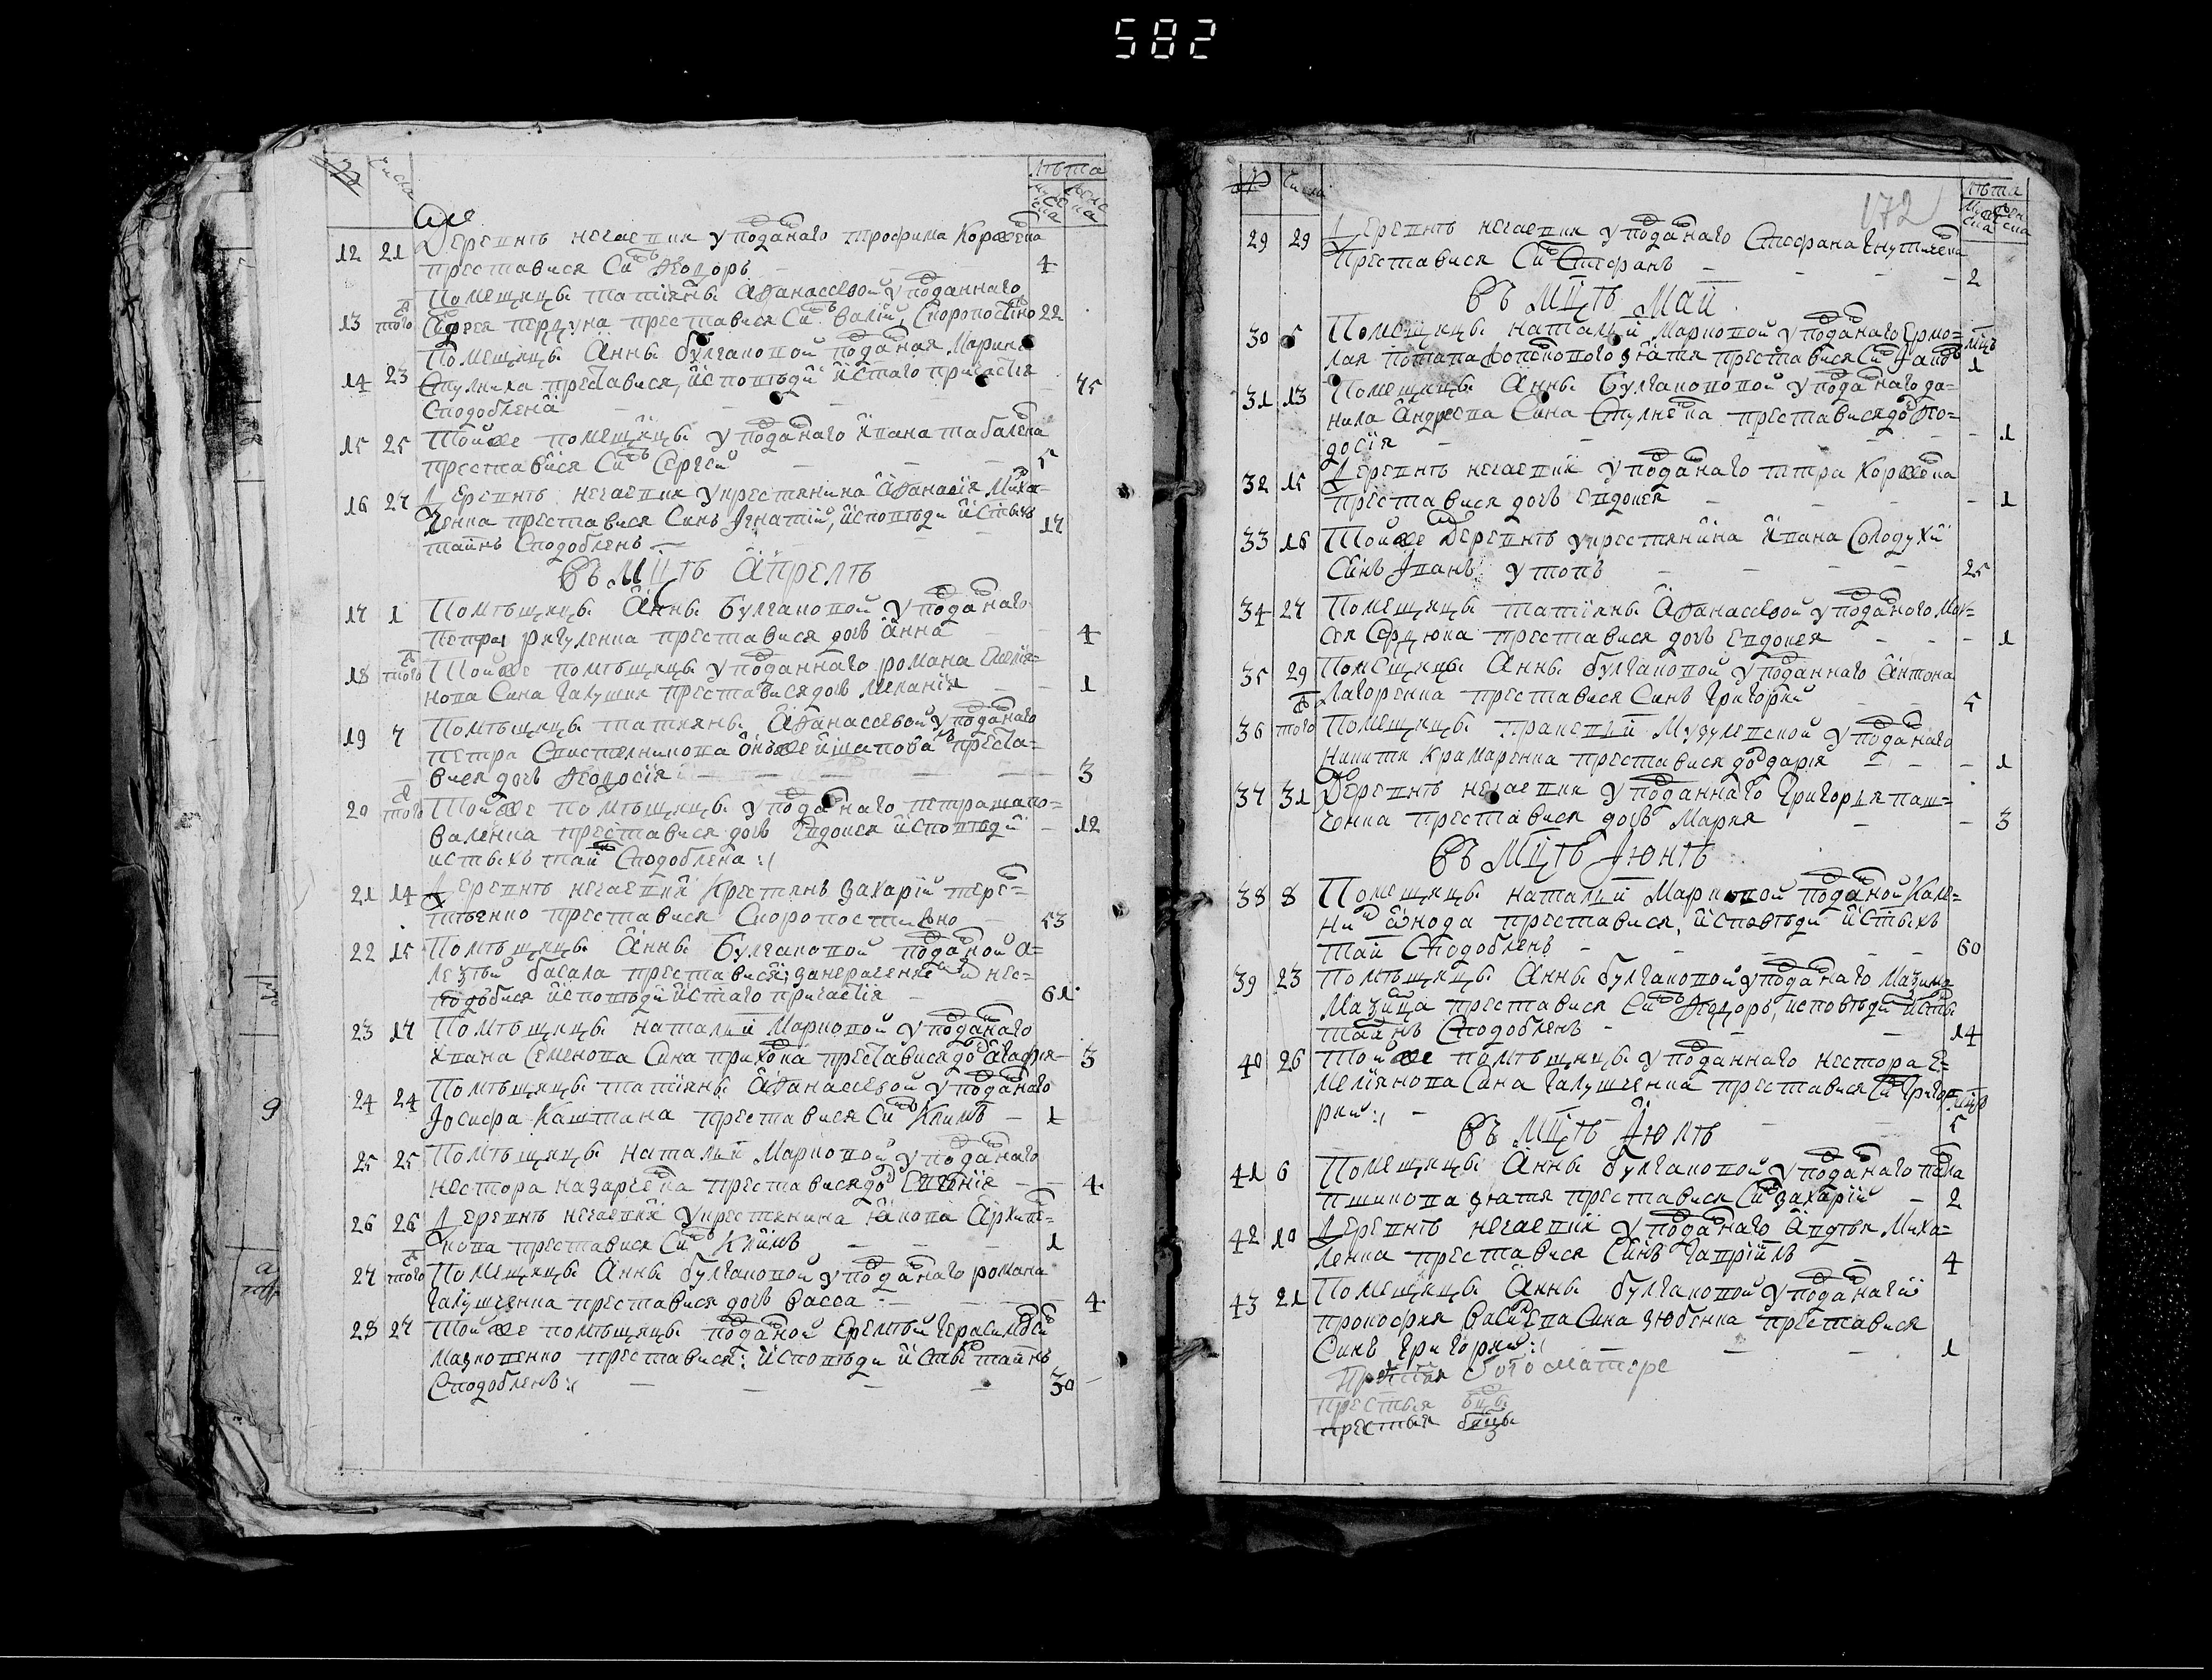 582
№ Числа
лѣта
муже ска женс ска
12 21 Деревнѣ нечаевки у поданаго трофима Корженка
преставися Синъ Ѳеодоръ 4
Помещицы татіяны Аѳанасѣвой у поданнаго
13 того пердуна преставися Синъ Скоропостижно 22
Помещицы Анны булгаковой поданая Марина
14 23 Стулника преставися, исповѣди и Стаго причастія 75
Сподоблена
15 25 Тойже помещицы у поданаго ивана табаленка
преставися Синъ Сергей 5
16 27 Деревнѣ нечаевки у крестянина Аѳанасія Миха-
ленка преставися Синъ Игнатій, исповѣди и Стыхъ 17
тайнъ Сподобленъ
Въ Мцѣ Апрелѣ
17 1 Помѣщицы Анны Булгаковой у поданаго
Петра ригуленка преставися дочь Анна 4
18 того Тойже помѣщицы у поданнаго романа Емелія-
нова Сина галушки преставися дочь Меланія 1
19 7 Помѣщицы татияны Аѳанасѣвой у поданаго
петра преста-
вися дочь Ѳеодосія 3
20 того Тойже помѣщицы у поданаго петра шапо-
валенка преставися дочь Евдокея исповѣди 12
и стыхъ тайн Сподоблена :(
21 14 Деревнѣ нечаевки Крестянъ Захарій тере-
преставися Скоропостижно 53
22 15 Помѣщицы Анны Булгаковой поданой а-
лезѣй басала преставися; нес-
подобися исповѣди и Стаго причастія 61
23 17 Помѣщицы Наталии Марковой у поданаго
ивана Семенова Сина приходка преставися дочь Агафія 3
24 24 Помѣщицы татіяны Аѳанасѣвой у поданаго
Іосифа Каштана преставися Синъ Климъ 1
25 25 Помѣщицы Наталии Марковой у поданаго
нестора назарченка преставися дочь Евгенія 4
26 26 Деревнѣ нечаевки у крестянина Якова Архипен-
кова преставися Синъ Климъ 1
27 того Помещицы Анны булгаковой у поданаго романа
галушченка преставися дочь Васса 4
28 27 Тойже помѣщицы поданой Еремѣй Герасимовъ
Мазкопенко преставися; исповѣди и Стыхъ тайнъ
Сподобленъ :( 30
172
№ Числа
лѣта
муже ска жен ска
29 29 Деревнѣ нечаевки у поданаго Стефана Гнутиченка
Преставися Синъ Стефанъ 2
Въ Мцѣ Май
30 5 Помещицы Наталии Марковой у поданаго Ермо- мцъ
лая потапа зятя преставися Синъ 1
31 13 Помещицы Анны Булгаковой у поданаго да-
нила Андреева Сина Стулнека преставися дочь Ѳео-
досія 1
32 15 Деревнѣ нечаевки у поданаго петра Корженка
преставися дочь Евдокея 1
33 16 Тойже Деревнѣ у крестянина ивана Солодухи
Синъ Иванъ утопъ 25
34 27 Помещицы татіяны Аѳанасѣвой у поданого Мои-
сея Сердюка преставися дочь Евдокея 1
35 29 Помещицы Анны булгаковой у поданнаго Антона
Лагоренка преставися Синъ Григорий 5
36 того Помещицы у поданаго
Никити Крамаренка преставися дочь дарія 1
37 31 Деревнѣ нечаевки у поданнаго Григория паш-
ченка преставися дочь Мария 3
Въ Мцѣ Июнѣ
38 8 Помещицы наталии Марковой поданой Кале-
ник преставися, исповѣди и Стыхъ
тайн Сподобленъ 60
39 23 Помѣщицы Анны булгаковой у поданаго Мазима
преставися Синъ Ѳеодоръ, исповѣди и Стых
тайнъ Сподобленъ 14
40 26 Тойже помѣщицы у поданнаго нестора Е-
меліянова Сина галушченка преставися Синъ Григо- мцъ
рий :( 5
Въ Мцѣ Июлѣ
41 6 Помещицы Анны булгаковой у поданаго павла
пшикова зятя преставися Синъ Захарій 2
42 10 Деревнѣ нечаевки у поданаго Авдѣя Миха-
ленка преставися Синъ Гавріилъ 4
43 21 Помещицы Анны булгаковой у поданаго
прокофия Василева Сина зюбенка преставися
Синъ Григорий :( 1
Прстая богоматере
престыя бцы
престыя бцы